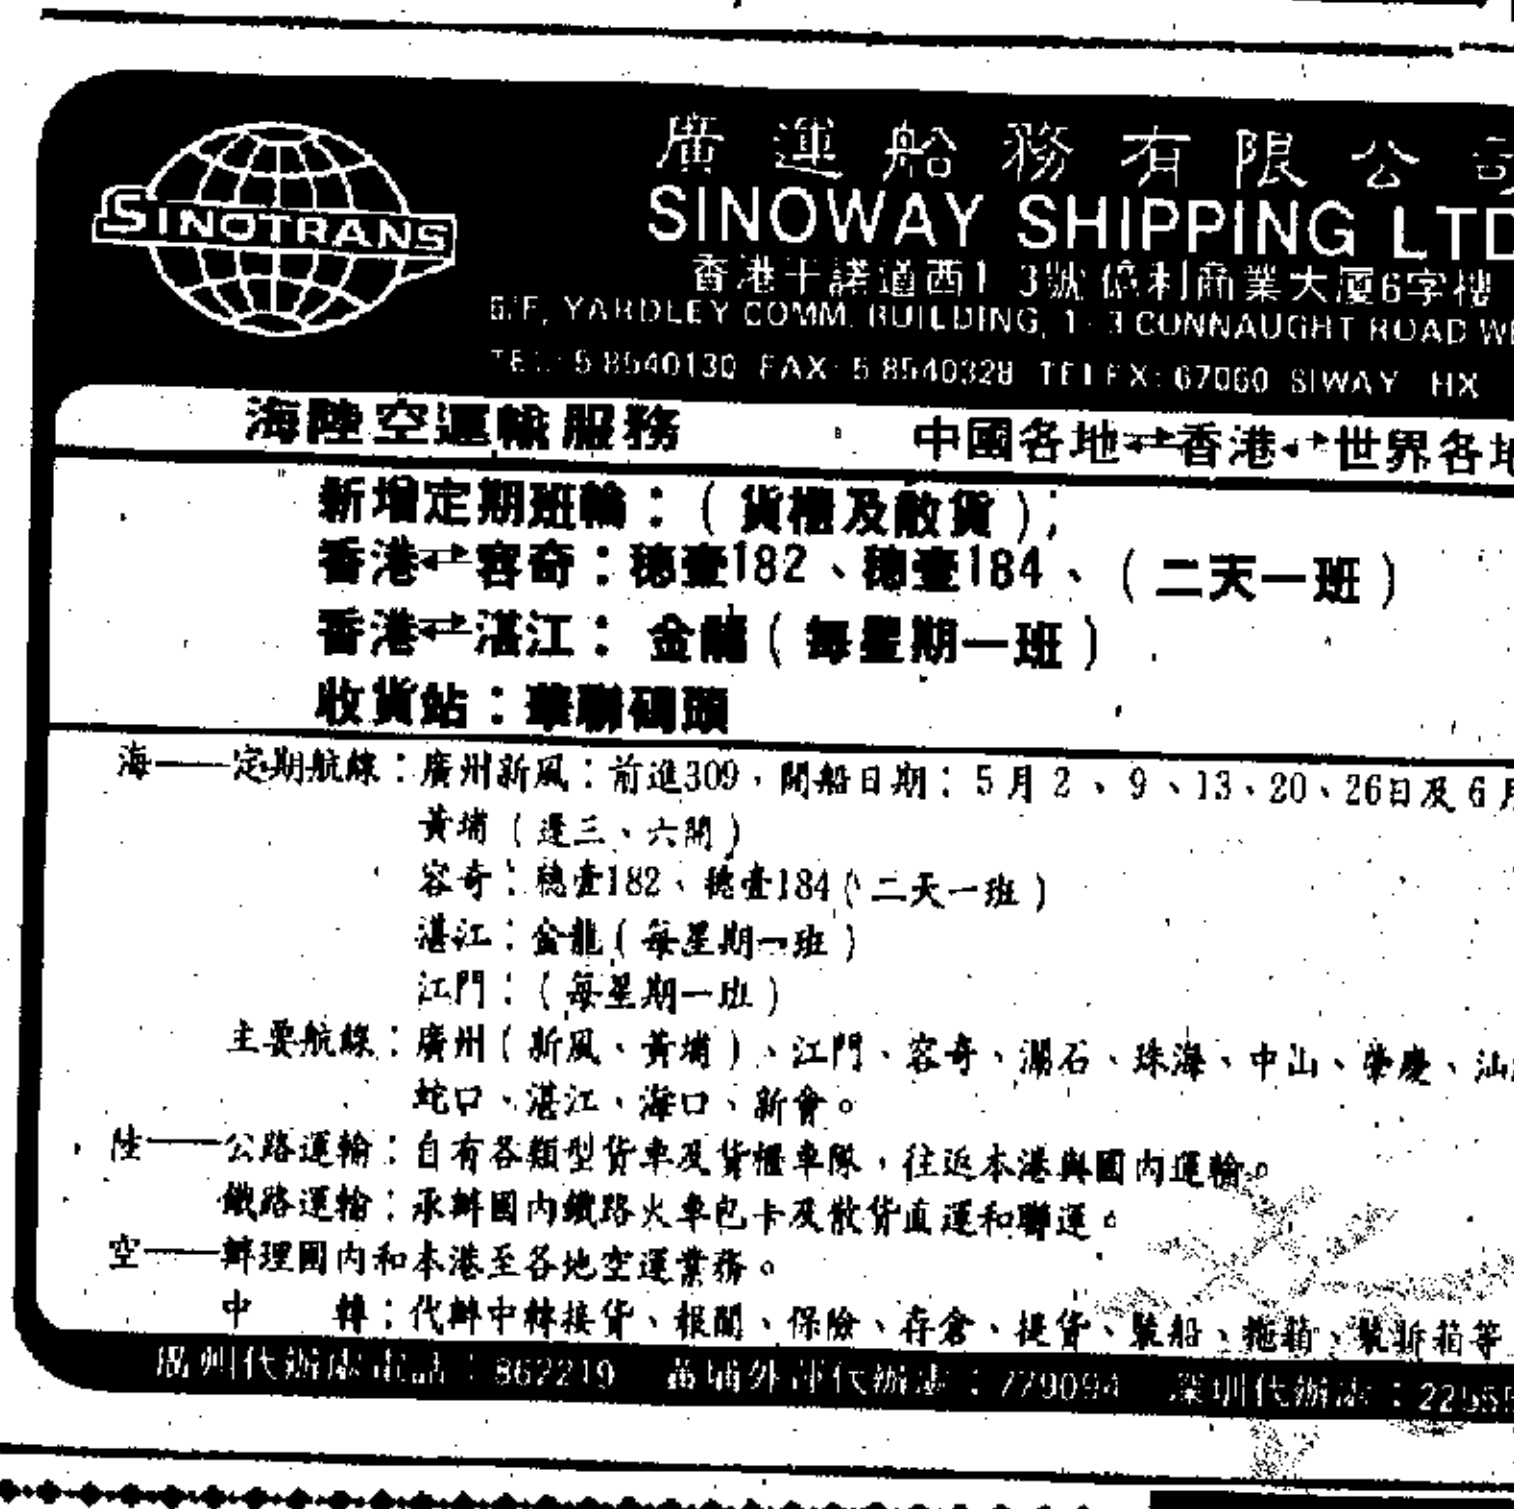 SINOTRANS
廣運船務有限公司
SINOWAY SHIPPING LTD
香港干諾道西1 3號億利商業大廈6字樓
6/F, YARDLEY COMM. BUILDING, 1-3 CONNAUGHT ROAD WE
TEL: 5 8540130 FAX: 5 8540328 TELEX: 67060 SIWAY HX
海陸空運輸服務 中國各地⇄香港⇄世界各地
新增定期班輪:(貨櫃及散貨);
香港⇄容奇:穗壹182、穗壹184、(二天一班)
香港⇄湛江:金龍(每星期一班)
收貨站:華聯碼頭
海——定期航線:廣州新風:前進309,開船日期:5月2、9、13、20、26日及6月
黃埔(逢三、六開)
容奇:穗壹182、穗壹184(二天一班)
湛江:金龍(每星期一班)
江門:(每星期一班)
主要航線:廣州(新風、黃埔)、江門、容奇、瀾石、珠海、中山、肇慶、汕
蛇口、湛江、海口、新會。
陸——公路運輸:自有各類型货車及貨櫃車隊,往返本港與國內運輸。
鐵路運輸:承辦國内鐵路火車包卡及散货直運和聯運。
空——辦理國内和本港至各地空運業務。
中 轉:代辦中轉接货、報關、保險、存倉、提货、裝船、拖箱、裝拆箱等
廣州代辦處電話:862219 黃埔外運代辦處:779094 深圳代辦處:2255